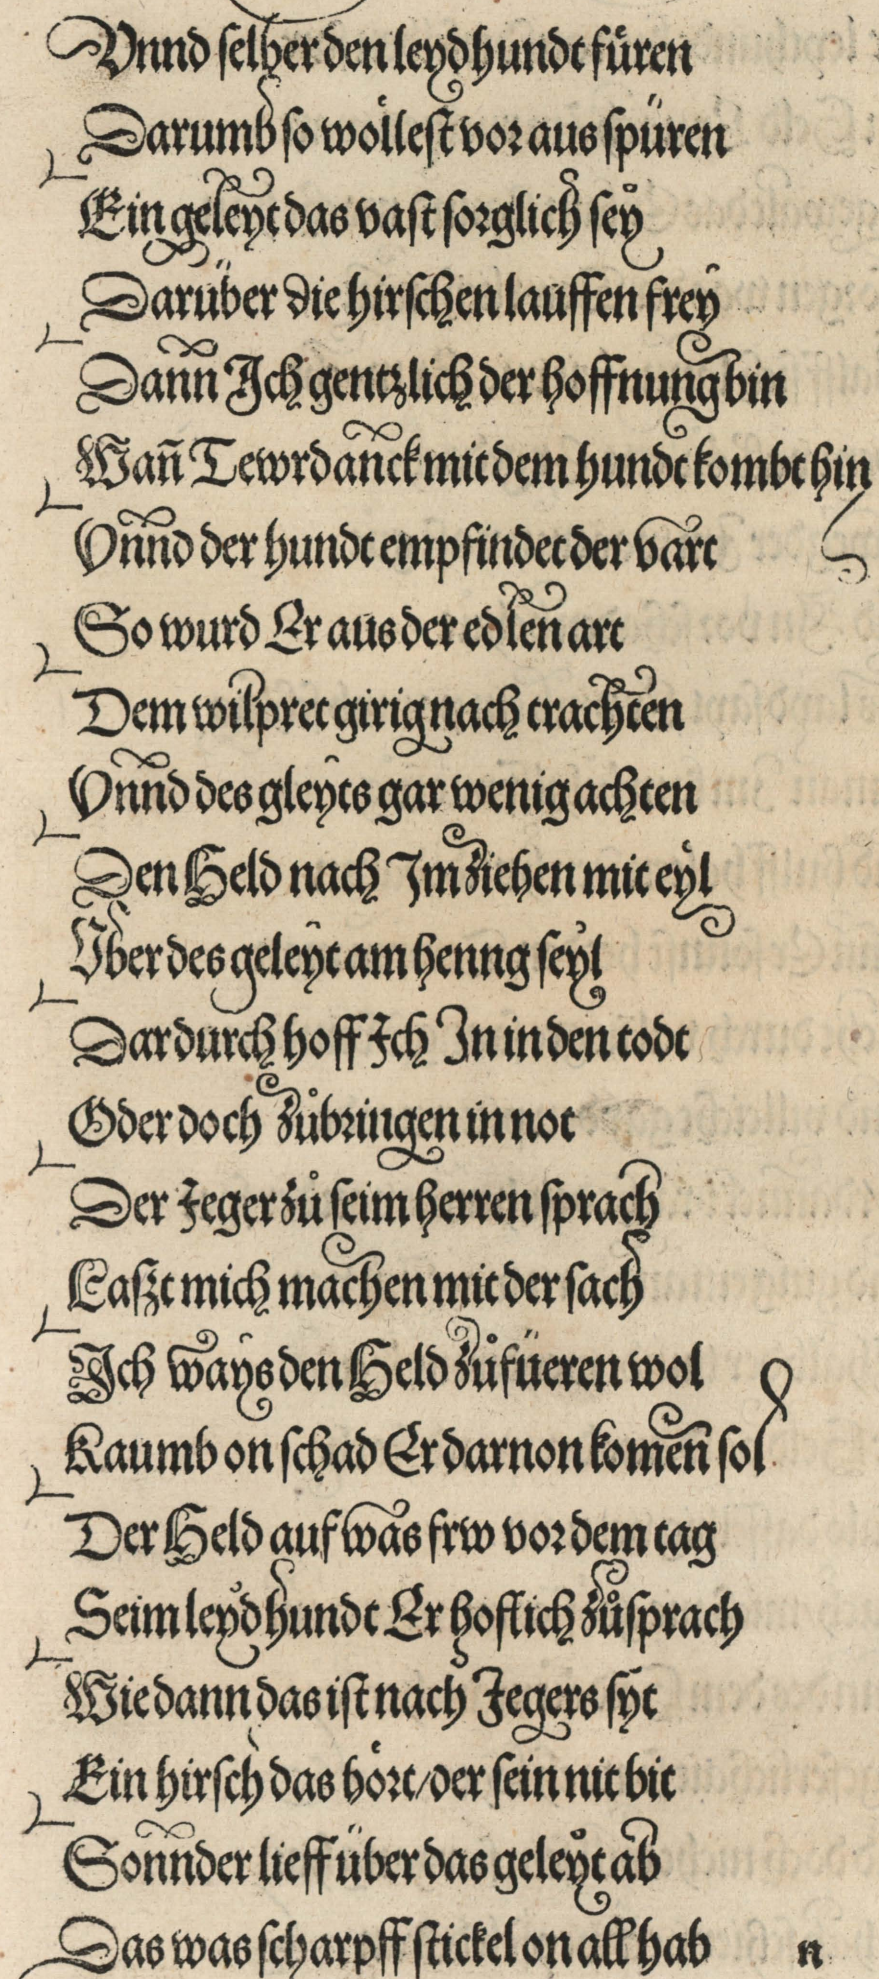 Vnnd selber den leydhundt füren
Darumb so wöllest vor aus spüren
Ein geleyt das vast sorglich sey
Darüber die hirschen lauffen frey
Dann Ich gentzlich der hoffnung bin
Wañ Tewrdanck mit dem hundt kombt hin
Vnnd der hundt empfindet der vart
So wurd Er aus der edlen art
Dem wilpret girig nach trachten
Vnnd des gleyts gar wenig achten
Den Held nach Im ziehen mit eyl
Vber des geleyt am henng seyl
Dardurch hoff Ich In in den todt
Oder doch zůbringen in not
Der Jeger zů seim herren sprach
Laszt mich machen mit der sach
Ich ways den Held zůfüeren wol
Kaumb on schad Er darnon komen sol
Der Held auf was frw vor dem tag
Seim leydhundt Er hoflich zůsprach
Wie dann das ist nach Jegers syt
Ein hirsch das hört/der sein nit bit
Sonnder lieff über das geleyt ab
Das was scharpff stickel on all hab n